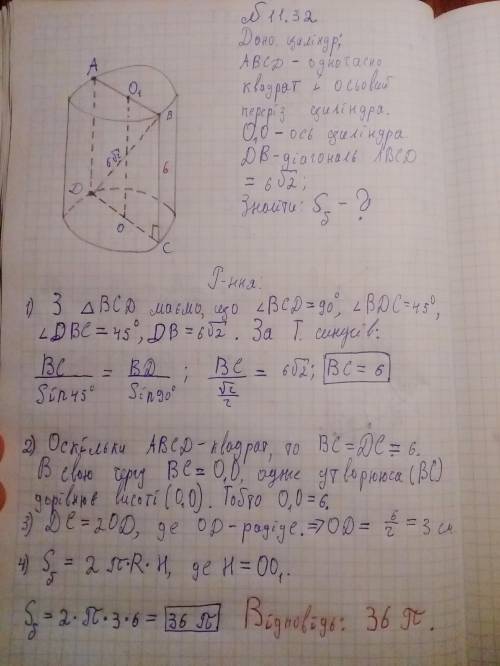 № 11.32
Дано: циліндр;
ABCD - одночасно
квадрат і осьовий
переріз циліндра.
O₁O - ось циліндра
DB - діагональ ABCD
= 6√2;
Знайти: Sб - ?
A
O₁
B
6√2
6
D
O
C
Р-ння:
1) З △BCD маємо, що ∠BCD = 90°, ∠BDC = 45°,
∠DBC = 45°, DB = 6√2. За Т. синусів:
BC/Sin45° = BD/Sin90° ; BC/(√2/2) = 6√2; BC = 6
2) Оскільки ABCD - квадрат, то BC = DC = 6.
В свою чергу BC = O₁O, адже утворююча (BC)
дорівнює висоті (O₁O). Тобто O₁O = 6.
3) DC = 2OD, де OD - радіус. ⇒ OD = 6/2 = 3 см
4) Sб = 2π·R·H, де H = OO₁.
Sб = 2·π·3·6 = 36π Відповідь: 36π.